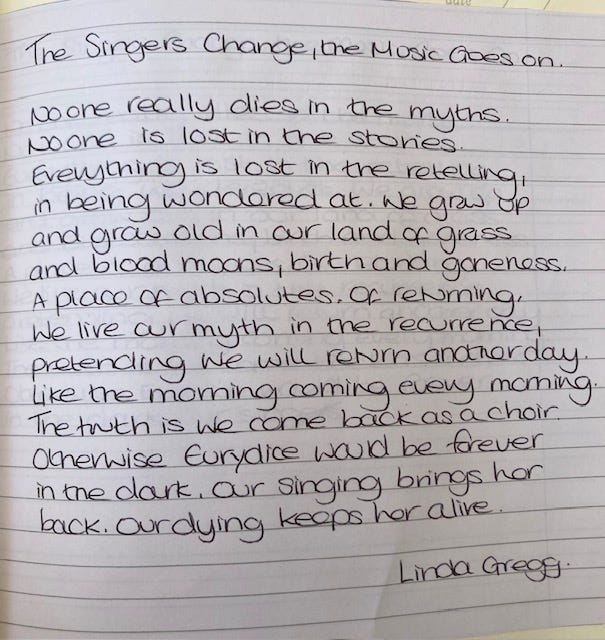 The Singers Change, the Music Goes on.
No one really dies in the myths.
No one is lost in the stories.
Everything is lost in the retelling,
in being wondered at. We grow up
and grow old in our land of grass
and blood moons, birth and goneness.
A place of absolutes. Of returning.
We live our myth in the recurrence,
pretending we will return another day.
Like the morning coming every morning.
The truth is we come back as a choir.
Otherwise Eurydice would be forever
in the dark. Our singing brings her
back. Our dying keeps her alive.
Linda Gregg.